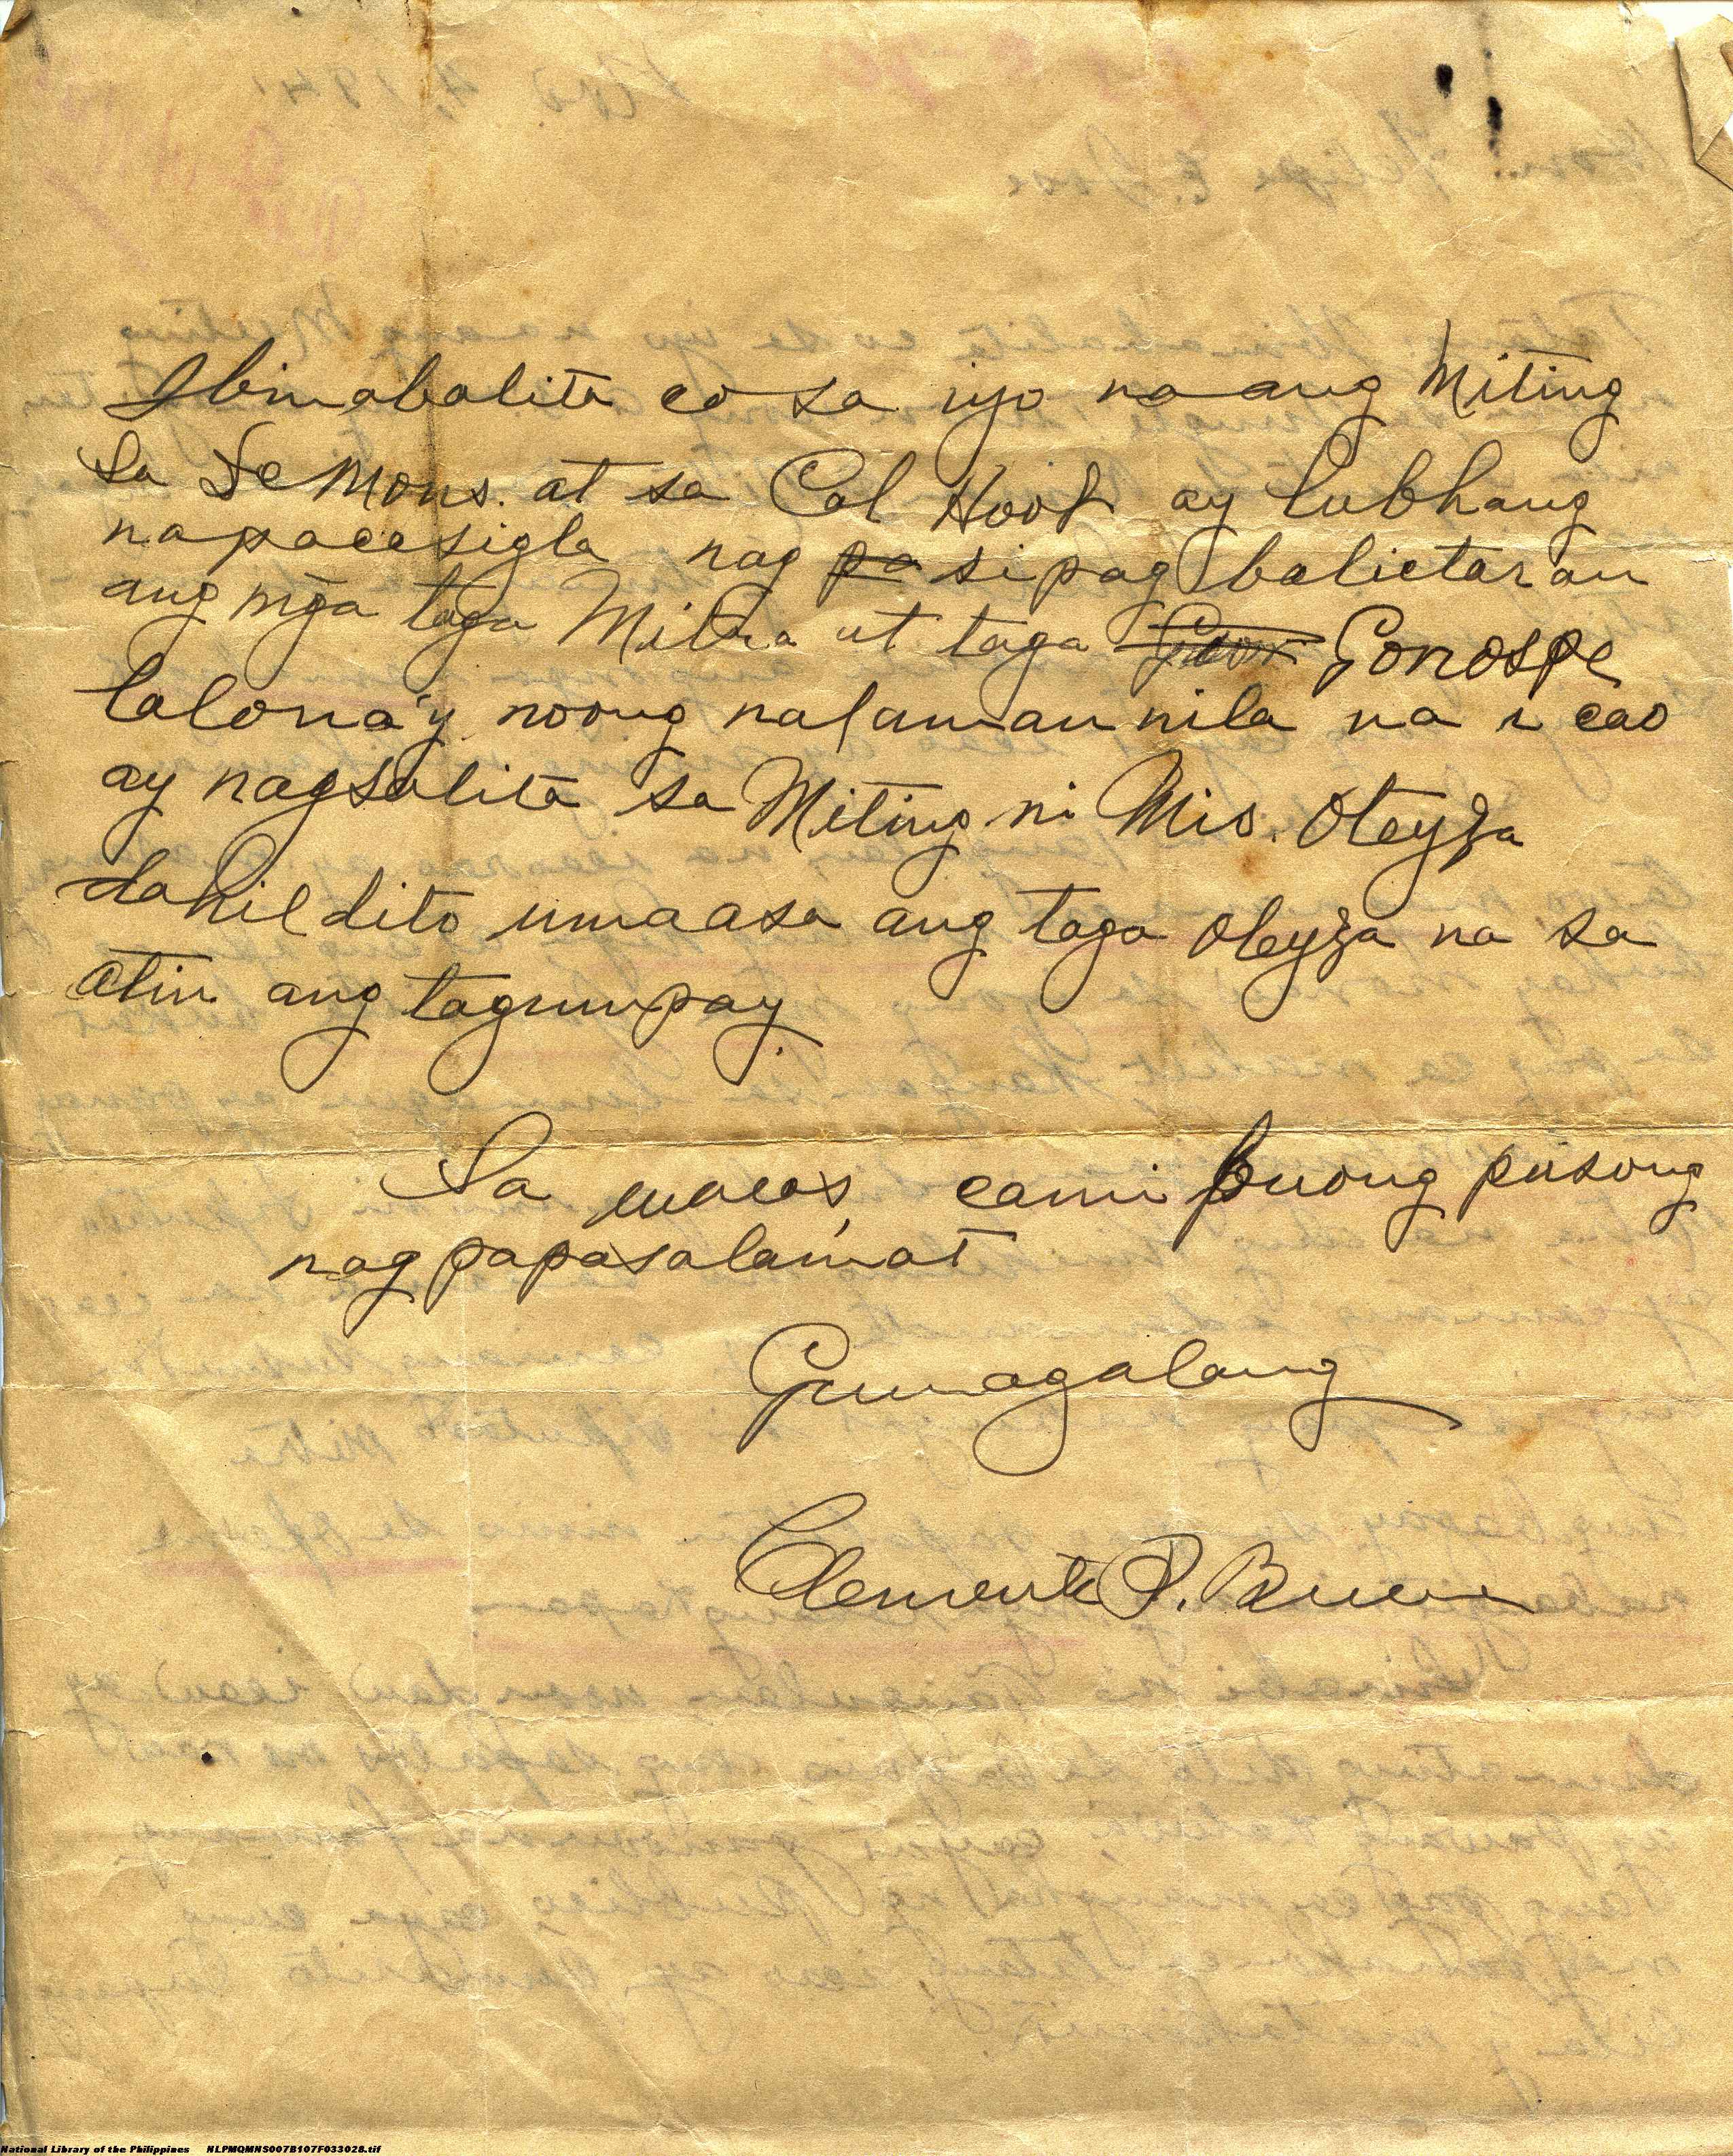 Ibinabalita co sa iyo na ang Miting
sa Semons. at sa Col Hoof ay lubhang
napacasigla nag pa sipag balictaran
ang mga taga Mitra at taga Gonospe
lalona'y noong nalaman nila na i cao
ay nagsalita sa Miting ni Mis. Oteyza
dahil dito umaasa ang taga Oteyza na sa
atin ang tagumpay.
Sa wacas, cami buong pusong
nag papasalamat
Gumagalang
Clemente P.
National Library of the Philippines NLPMQMNS007B107F033028.tif